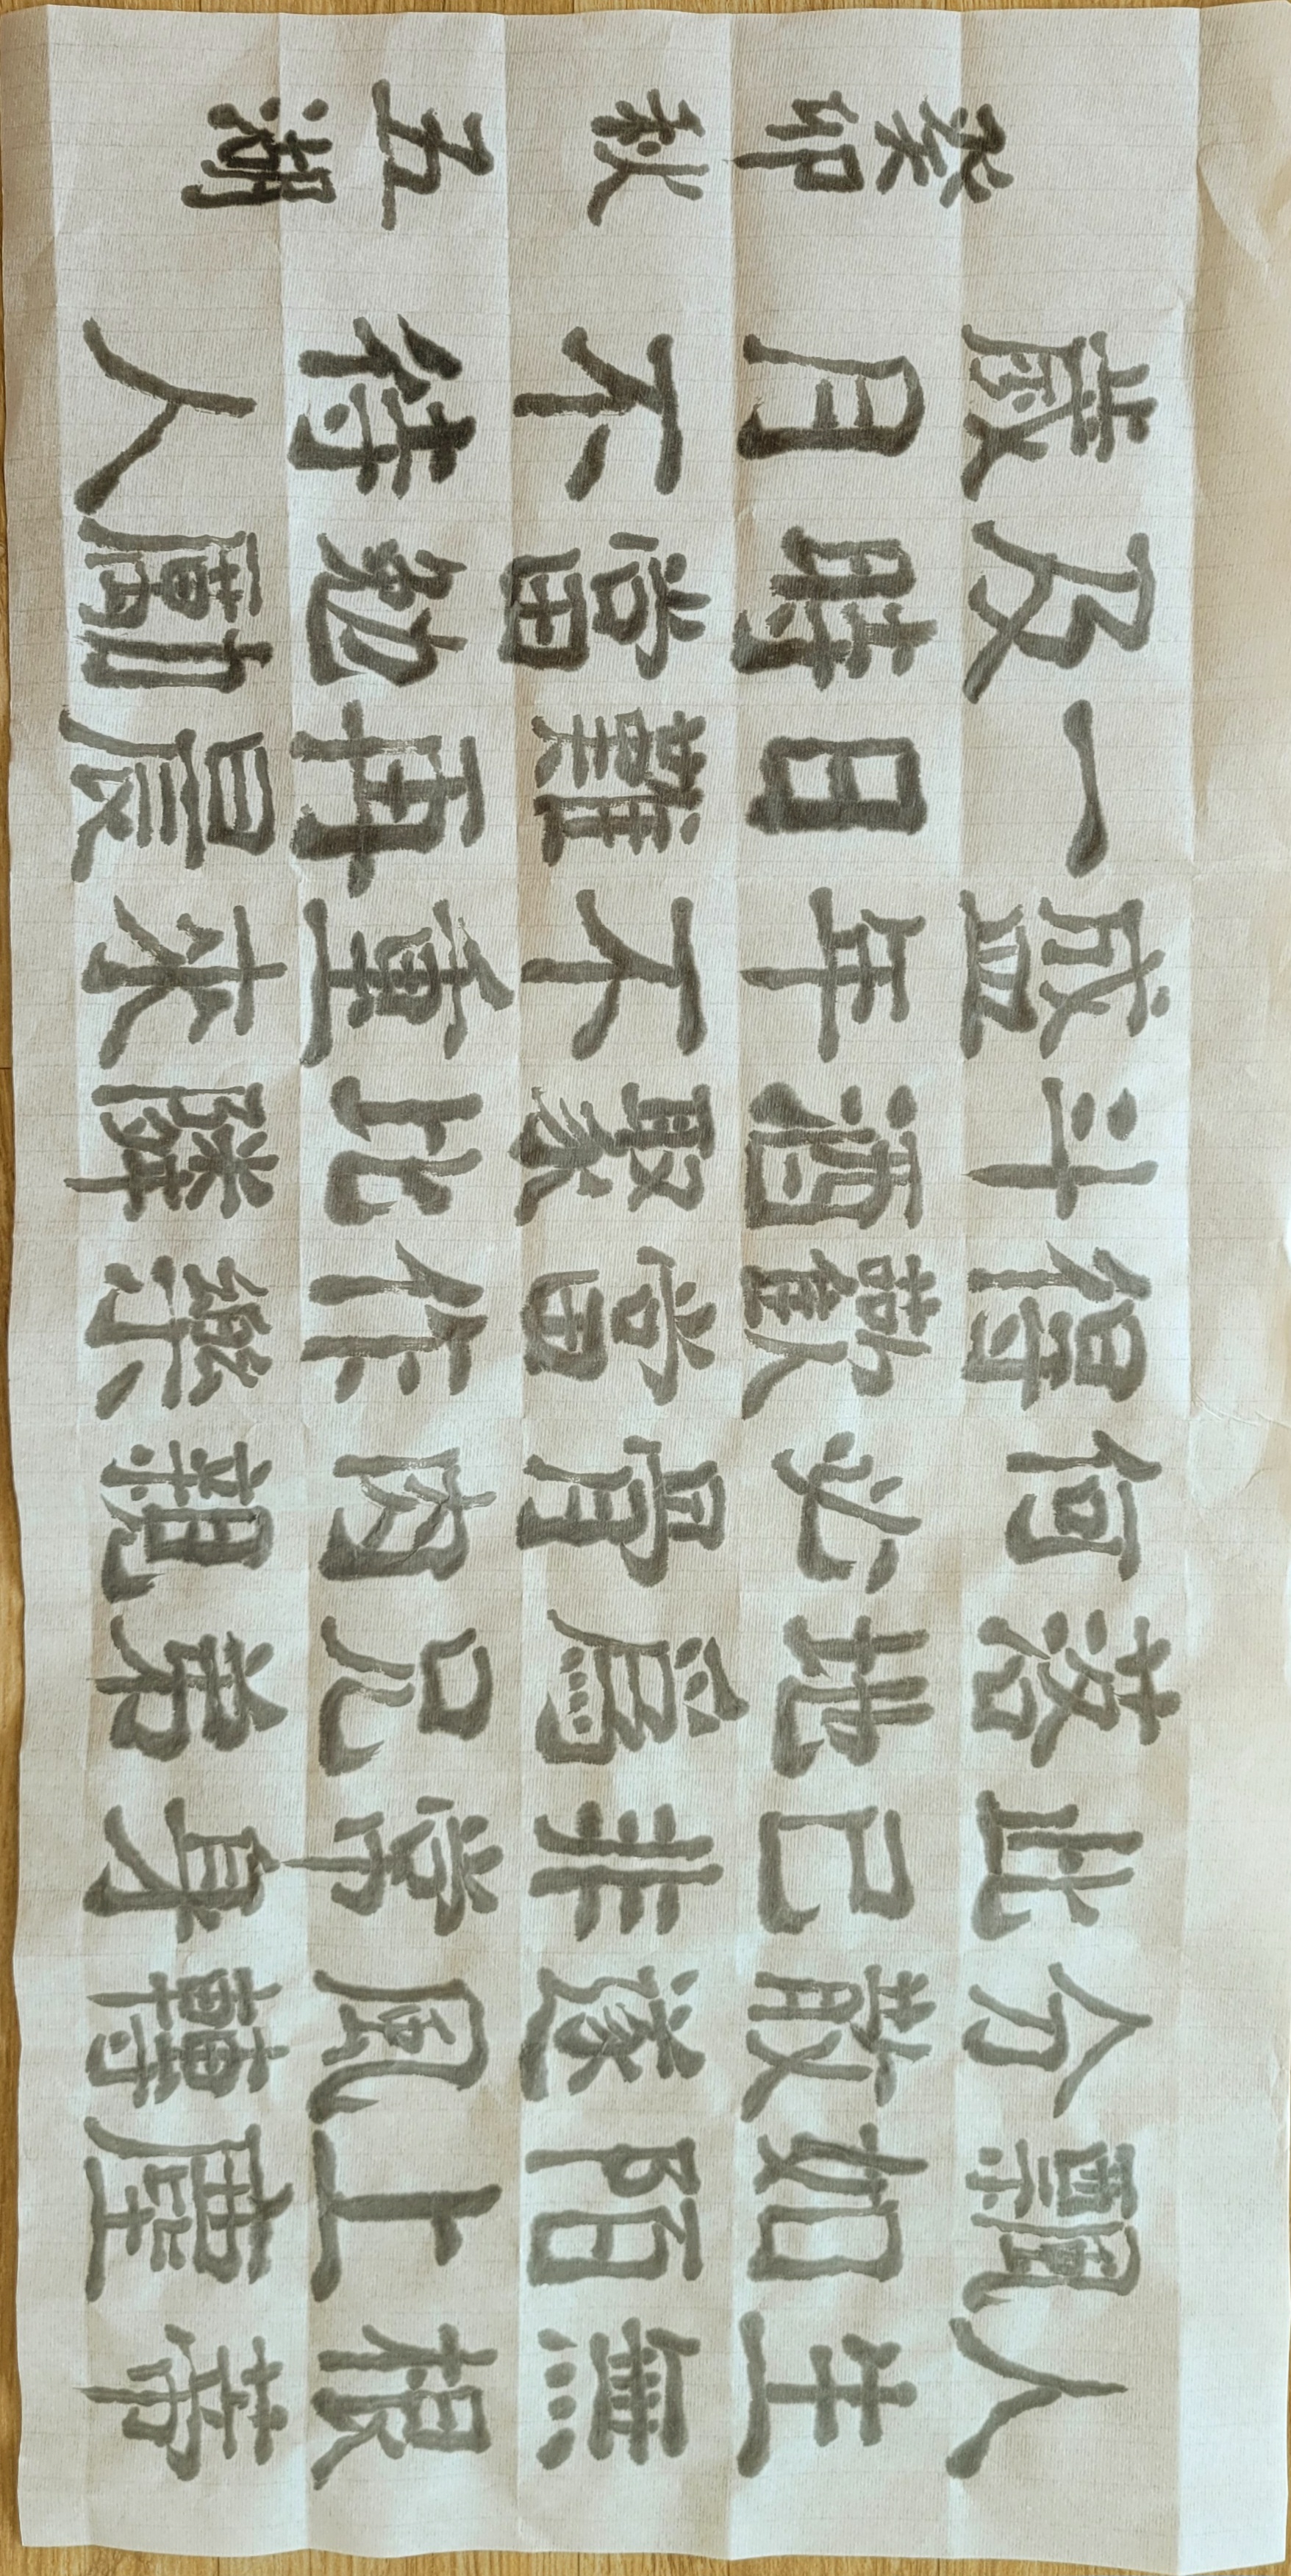 人生無根蒂
飄如陌上塵
分散逐風轉
此已非常身
落地爲兄弟
何必骨肉親
得歡當作樂
斗酒聚比隣
盛年不重來
一日難再晨
及時當勉勵
歲月不待人
癸卯秋五湖